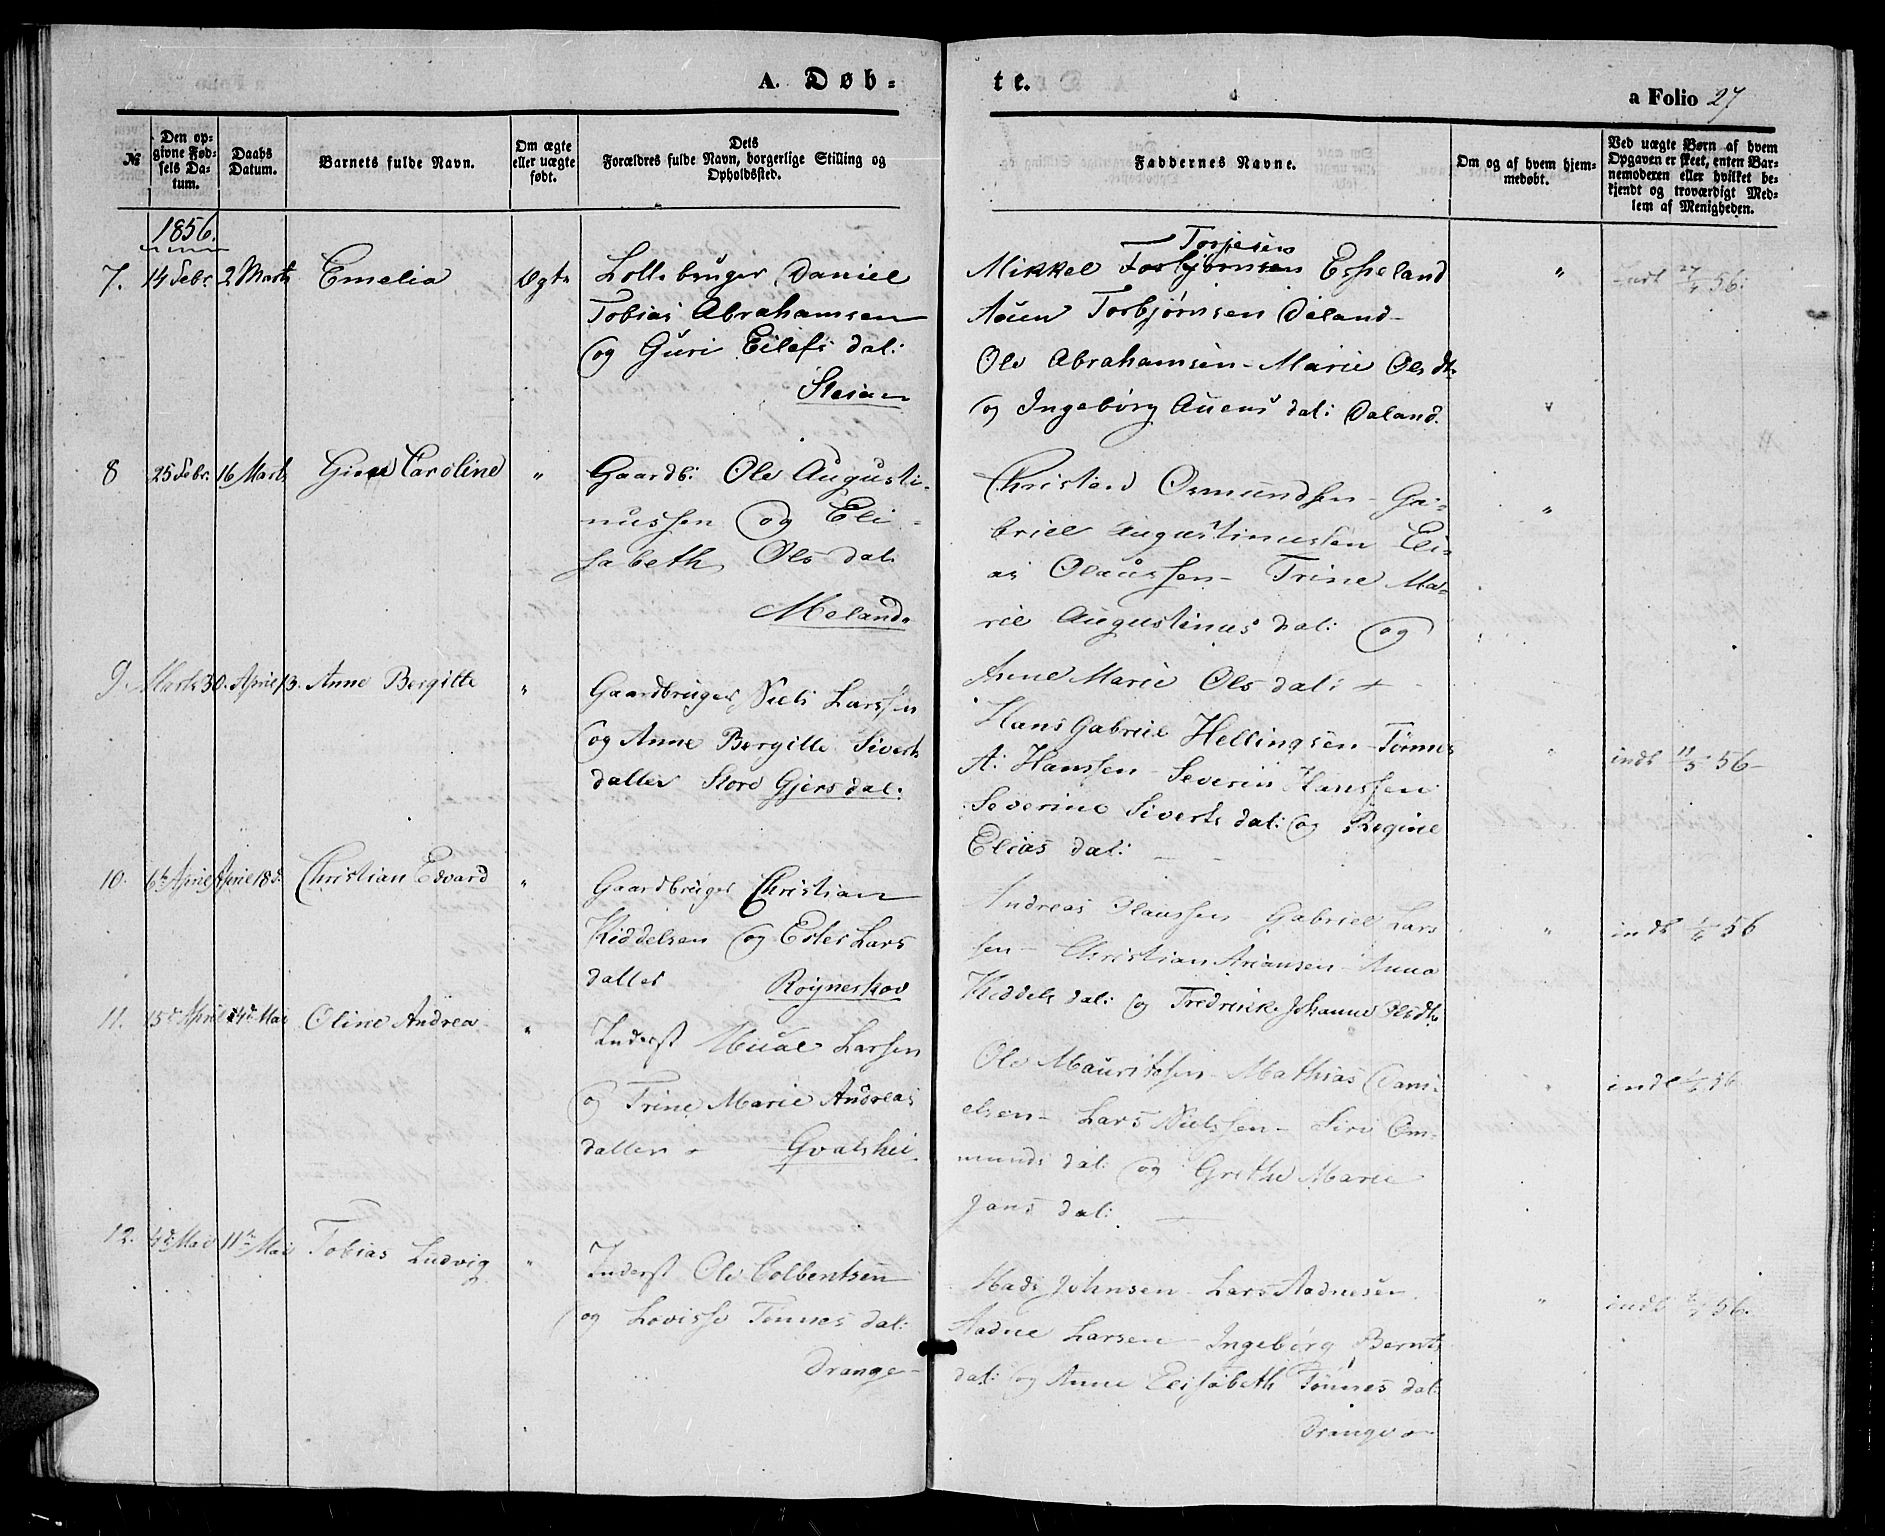 A. Døb-
te.
a Folio 27
№
Den op-
givne Fød-
sels Da-
tum.
Daabs
Datum.
Barnets fulde Navn.
Om ægte
eller uægte
født.
Dets
Forældres fulde Navn, borgerlige Stilling og
Opholdssted.
Faddernes Navne.
Om og af hvem hjem-
medøbt.
Ved uægte Børn af hvem
Opgaven er skeet, enten Bar-
nemoderen eller hvilket be-
kjendt og troværdigt Med-
lem af Menigheden.
1856.
7. 14 Febr. 2 Marts Emelia Ægte
Daniel
Tobias Abrahamsen
og Guri Eilefs dal:
Mikkel Torbjørnsen Espeland
Torjesen
Torbjørnsen Daland
Ole Abrahamsen - Marie Ols dtr
og Ingeborg Auens dal: Daland.
" indt 27/4 56:
8 25 Febr. 16 Marts Caroline "
Gaardb: Ole Augusti-
nussen og Eli-
sabeth Ols dal:
Meland
Christen Osmundsen - Ga-
briel Augustinussen Eli-
as Olaussen - Trine Ma-
rie Augustinus dal: og
Anne Marie Ols dal:
"
9. Marts 30. April 13. Anne Bergitte "
Gaardbruger Niels Larssen
og Anne Bergitte Siverts
datter Store Gjersdal:
Hans Gabriel Hellingsen - Tønnes
A: Hanssen - Severin Hanssen
Severine Siverts dal: og Regine
Elias dal:
" indt 56
10. 6te April April 18d: Christian Edvard "
Gaardbruger Christian
Kiddelsen og Ester Lars
datter Røyneskov
Andreas Olaussen Gabriel Lars
sen - Christian Ariansen - Anna
Kiddels dal: og Fredrikke Johanne Olsdtr
" indt 56
11. 15de April 4de Mai Oline Andrea "
Inderst Larsen
og Trine Marie Andreas
datter Gvalshei
Ole Mauritssen - Mathias Dani-
elsen - Lars Nielssen - Siri Om-
munds dal: og Grethe Marie
Jans dal:
" indt 56
12. 4de Mai 11te Mai Tobias Ludvig "
Inderst Ole Colbentsen
og Lovisse Tønnes dal:
Drange
Mads Johnsen - Lars Aadnesen
Aadne Larsen - Ingeborg Bernts
dal: og Anne Elisabeth Tønnes dal:
Drange
" indt 56.